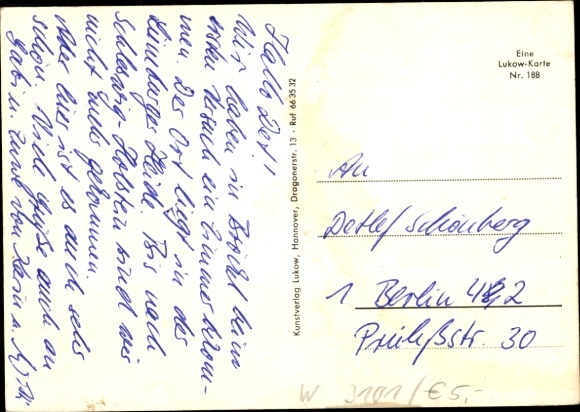 Hallo Det!
Wir haben in Brickel beim
ersten Versuch ein Zimmer bekom-
men. Der Ort liegt in der
Lüneburger Heide. Bis nach
Schleswig-Holstein sind wir
nicht mehr gekommen.
Aber hier ist es auch sehr
schön. Viele Grüße auch an
Gabi u. von Karin u.
Kunstverlag Lukow, Hannover, Dragonerstr. 13 · Ruf 66 35 32
Eine
Lukow-Karte
Nr. 188
An
Detlef Schönberg
1 Berlin 42
Prühßstr. 30
W 3191/€5,-